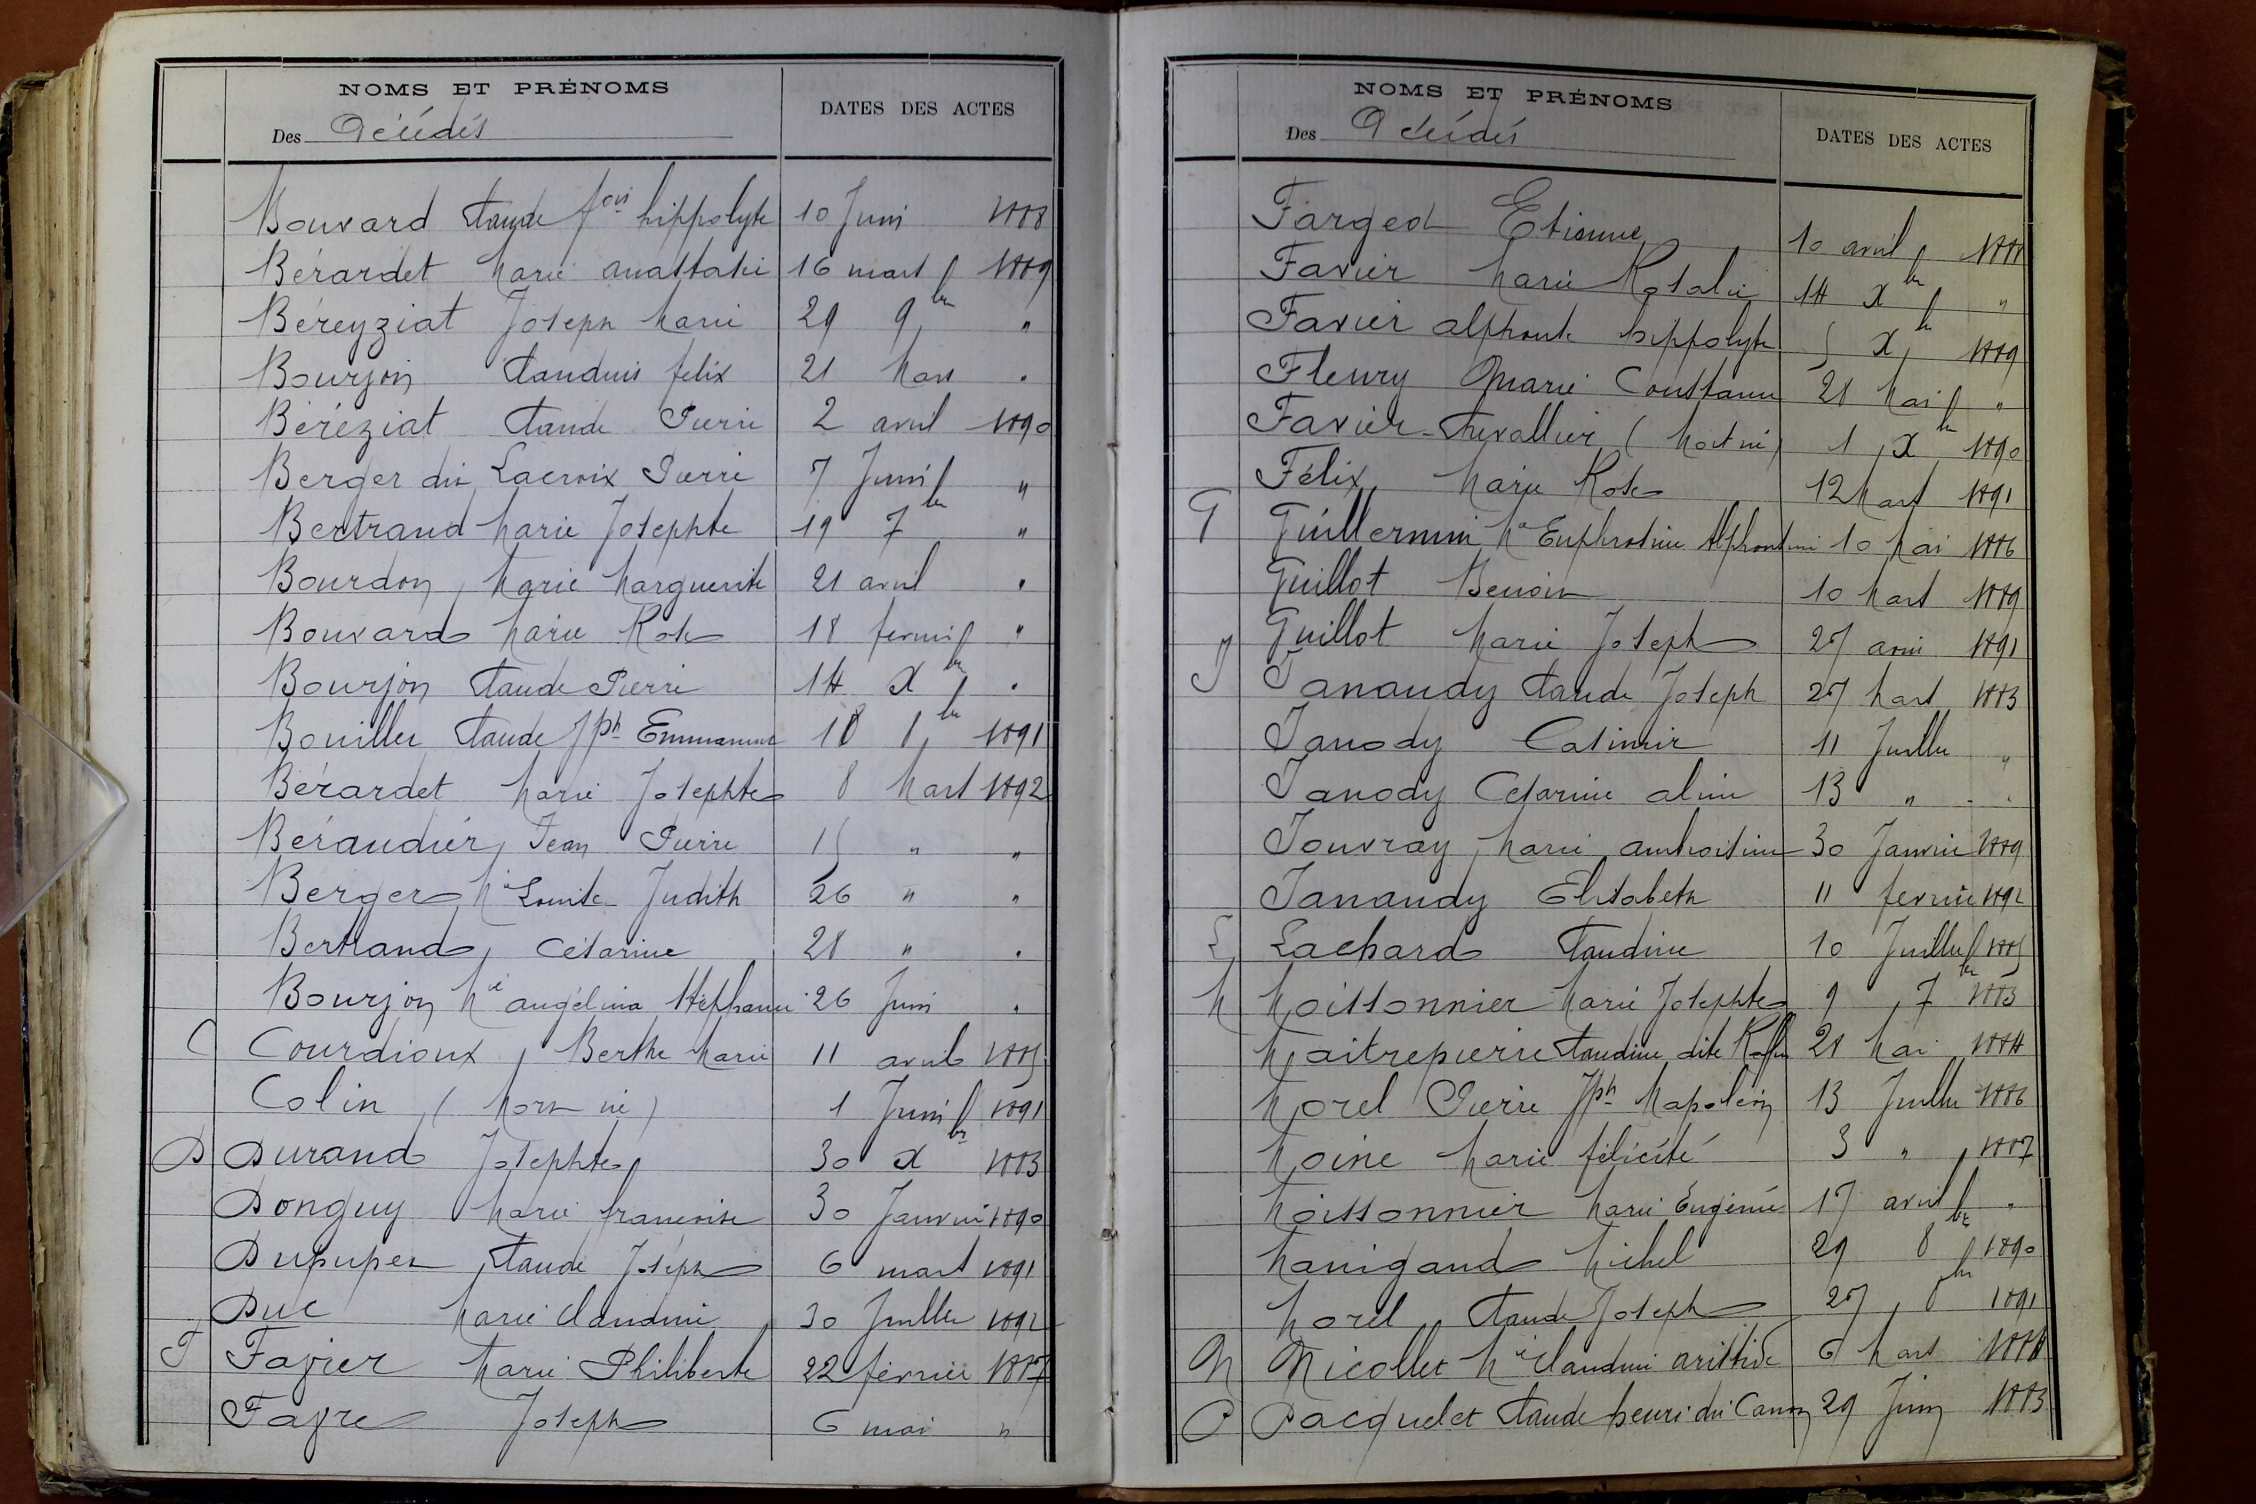 NOMS ET PRÉNOMS
DATES DES ACTES
Des Décédés
Bouvard Claude fois hippolyte 10 Juin 1888
Bérardet Marie anastasie 16 mars 1889
Béreyziat Joseph Marie 29 9bre "
Bourjon Claudius felix 21 Mars "
Béréziat Claude Pierre 2 avril 1890
Berger dit Lacroix Pierre 7 Juin "
Bertrand Marie Josephte 19 7bre "
Bourdon Marie Marguerite 21 avril "
Bouvard Marie Rose 18 fevrier "
Bourjon Claude Pierre 14 Xbre "
Bouiller Claude Jph Emmanuel 18 8bre 1891
Bérardet Marie Josephte 8 Mars 1892
Béraudier Jean Pierre 15 " "
Berger Mie Louise Judith 26 " "
Bertrand Césarine 28 " "
Bourjon Mie angélina Stéphanie 26 Juin "
C Courdioux Berthe Marie 11 avril 1885
Colin (Mort né) 1 Juin 1891
D Durand Josephte 30 Xbre 1883
Donguy Marie françoise 30 Janvier 1890
Dupuper Claude Joseph 6 mars 1891
Duc Marie Claudine 30 Juillet 1892
F Favier Marie Philiberte 22 février 1887
Favre Joseph 6 mai "
NOMS ET PRÉNOMS
DATES DES ACTES
Des Décédés
Fargeot Etienne 10 avril 1888
Favier Marie Rosalie 14 Xbre "
Favier alphonse hippolyte 5 Xbre 1889
Fleury Marie Constance 28 Mai "
Favier-Chevallier (Mort né) 1 Xbre 1890
Félix Marie Rose 12 Mars 1891
G Guillermin Mie Euphrosine Alphonsine 10 Mai 1886
Guillot Benoit 10 Mars 1889
Guillot Marie Joseph 27 avril 1891
J Janaudy Claude Joseph 27 Mars 1883
Janody Casimir 11 Juillet "
Janody Césarine aline 13 " "
Jouvray Marie ambroisine 30 Janvier 1889
Janaudy Elisabeth 11 fevrier 1892
L Lachard Claudine 10 Juillet 1885
M Moissonnier Marie Josephte 9 7bre 1883
Maitrepierre Claudine dite Rosine 28 Mai 1884
Morel Pierre Jph Napoléon 13 Juillet 1886
Moine Marie félicité 3 " 1887
Moissonnier Marie Eugénie 17 avril "
Manigand Michel 29 8bre 1890
Morel Claude Joseph 27 8bre 1891
N Nicollet Mie Claudine aristide 6 Mars 1888
P Pacquelet Claude henri dit Canon 29 Juin 1883